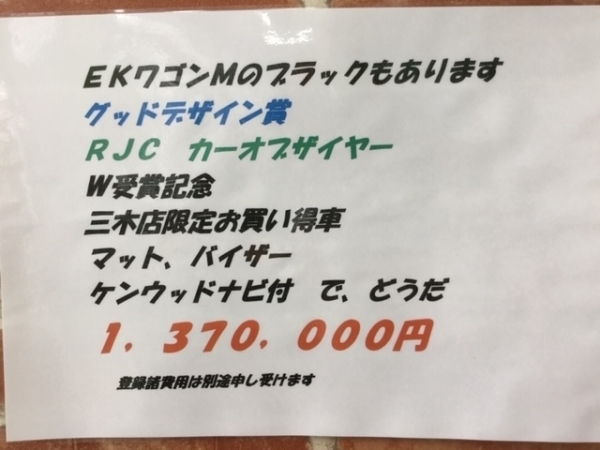 ＥＫワゴンＭのブラックもあります
グッドデザイン賞
ＲＪＣ　カーオブザイヤー
Ｗ受賞記念
三木店限定お買い得車
マット、バイザー
ケンウッドナビ付　で、どうだ
１，３７０，０００円
登録諸費用は別途申し受けます